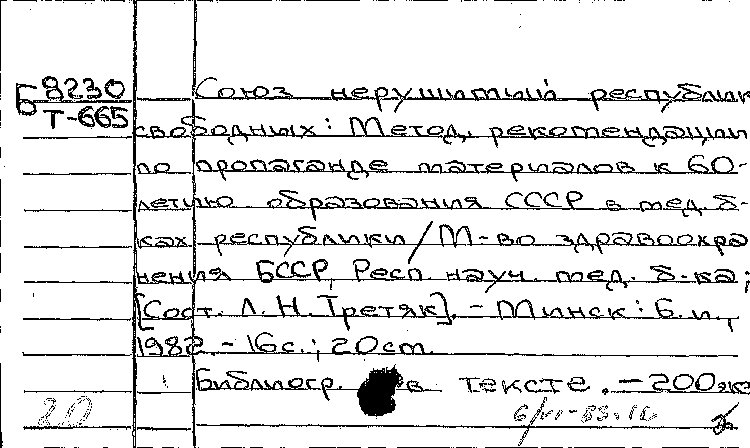 Б 8230
Т-665
Союз нерушимый республик
свободных: Метод. рекомендации
по пропаганде материалов к 60-
летию образования СССР в мед. б-
ках республики/М-во здравоохра
нения БССР, Респ. науч. мед. б-ка;
[Сост. Л. Н. Третяк]. - Минск: Б. и.,
1982. - 16 с.; 20 см.
Библиогр. в тексте. - 200 эк
20